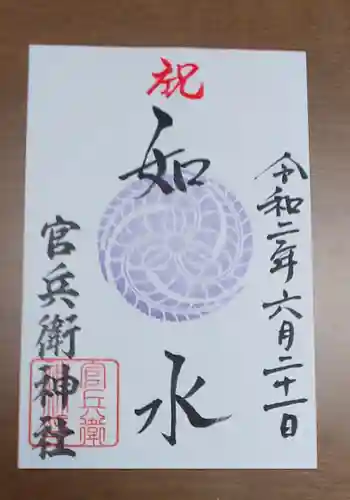 令和二年六月二十一日
祝
如水
官兵衛神社
官兵衛
神社